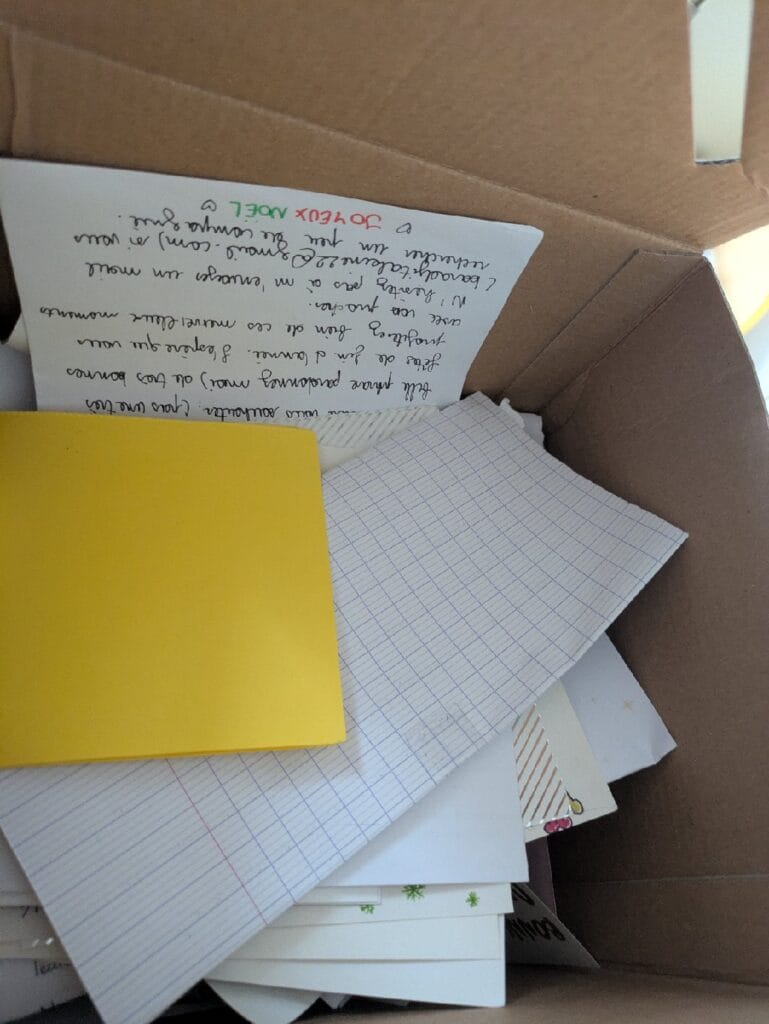 vous souhaiter (pas une très
belle phrase pardonnez moi) de très bonnes
fêtes de fin d'année. J'espère que vous
profiterez bien de ces merveilleux moments
avec vos proches.
N'hésitez pas à m'envoyez un mail
si vous
rechercher un peu de compagnie.
♡ JOYEUX NOËL ♡